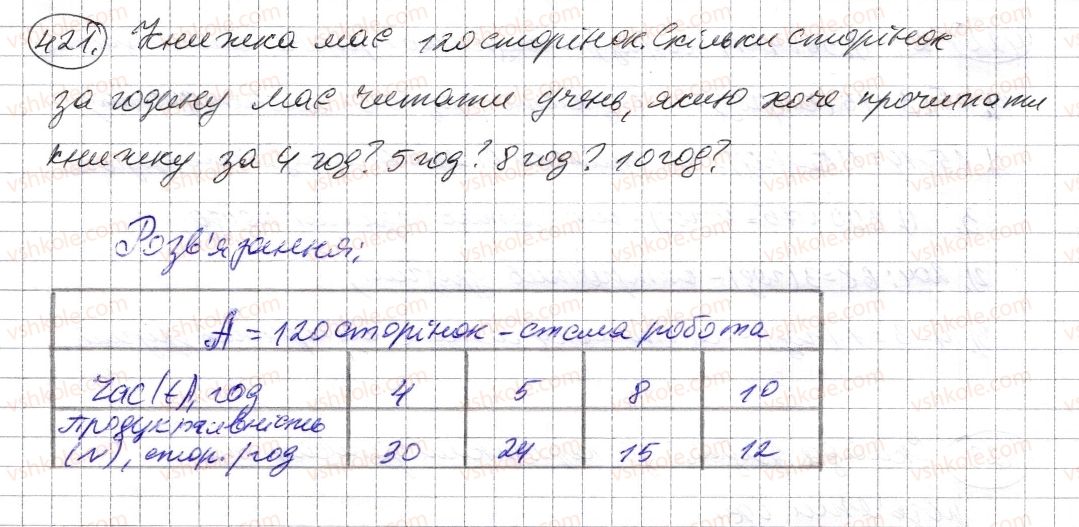 421. Книжка має 120 сторінок. Скільки сторінок
за годину має читати учень, якщо хоче прочитати
книжку за 4 год? 5 год? 8 год? 10 год?
Розв'язання:
A = 120 сторінок - стала робота
Час (t), год 4 5 8 10
Продуктивність
(N), стор./год 30 24 15 12